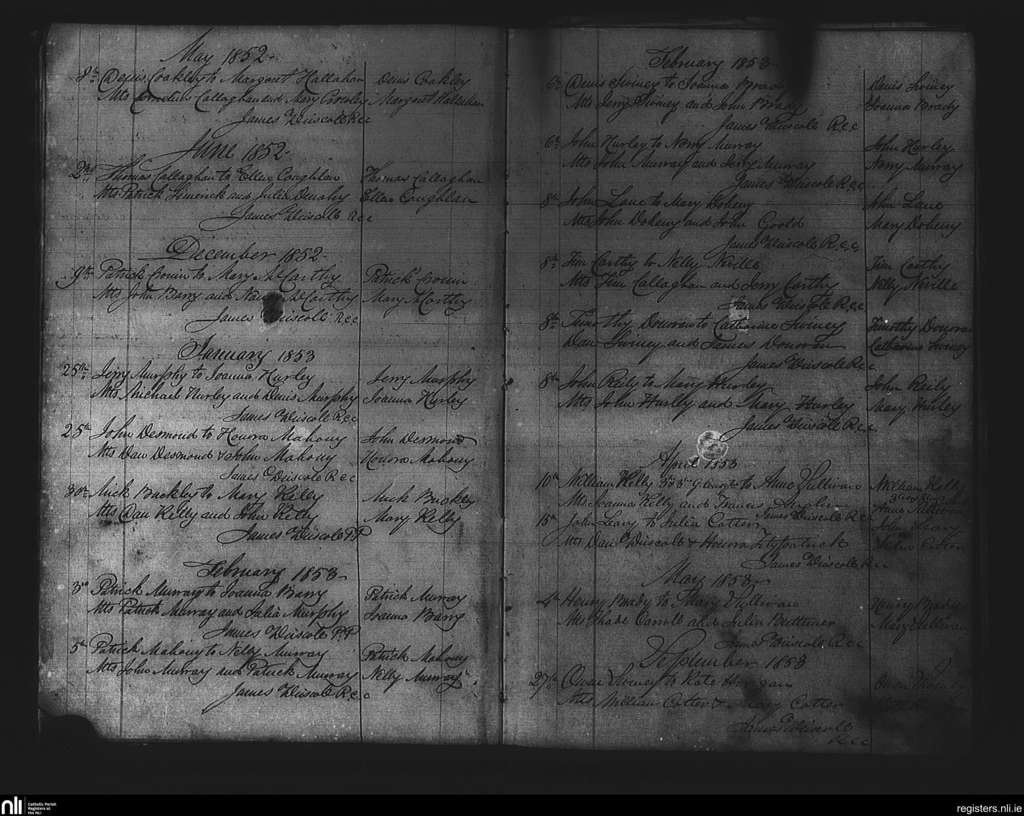 May 1852
8th Denis Coakley to Margaret Hallahan Denis Coakley
Wtts Cornelius Callaghan and Mary Crowley Margaret Hallahan
James Driscoll Rcc
June 1852
2nd Thomas Callaghan to Ellen Coughlan Thomas Callaghan
Wtts Patrick and Julia Ellen Coughlan
James Driscoll Rcc
December 1852
9th Patrick Cronin to Mary McCarthy Patrick Cronin
Wtts John Barry and McCarthy Mary McCarthy
James Driscoll Rcc
January 1853
25th Jerry Murphy to Joanna Hurley Jerry Murphy
Wtts Michael Hurley and Denis Murphy Joanna Hurley
James Driscoll Rcc
25th John Desmond to Honora Mahony John Desmond
Wtts Dan Desmond & John Mahony Honora Mahony
James Driscoll Rcc
30th Mick Buckley to Mary Kelly Mick Buckley
Wtts Dan Kelly and John Kelly Mary Kelly
James Driscoll PP
February 1853
3rd Patrick Murray to Joanna Barry Patrick Murray
Wtts Patrick Murray and Julia Murphy Joanna Barry
James Driscoll PP
5th Patrick Mahony to Nelly Murray Patrick Mahony
Wtts John Murray and Patrick Murray Nelly Murray
James Driscoll Rcc
February 1853
6th Denis Swiney to Joanna Brady Denis Swiney
Wtts Jerry Swiney and John Brady Joanna Brady
James Driscoll Rcc
6th John Hurley to Nory Murray John Hurley
Wtts John Murray and Jerry Murray Nory Murray
James Driscoll Rcc
8th John Lane to Mary Doheny John Lane
Wtts John Doheny and John Goold Mary Doheny
James Driscoll Rcc
8th Jim Carthy to Nelly Neville Jim Carthy
Wtts Tim Callaghan and Jerry Carthy Nelly Neville
James Driscoll Rcc
8th Timothy Donovan to Catharine Swiney Timothy Donovan
Dan Swiney and James Donovan Catharine Swiney
James Driscoll Rcc
8th John Reily to Mary Hurley John Reily
Wtts John Hurley and Mary Hurley Mary Hurley
James Driscoll Rcc
April 1853
10th William Kelly to Anne Sullivan William Kelly
Wtts Joanna Kelly and Francis Anne Sullivan
James Driscoll Rcc
15th John Leary to Julia Cotter John Leary
Wtts Dan Driscoll & Honora Fitzpatrick Julia Cotter
James Driscoll Rcc
May 1853
4th Henry Brady to Mary Sullivan Henry Brady
Wtts Carroll and Julia Buttimer Mary Sullivan
James Driscoll Rcc
September 1853
27th Owen Swiney to Kate Owen
Wtts William Cotter & Mary Cotter
James Driscoll
Rcc
nli Catholic Parish
Registers at
the NLI
registers.nli.ie